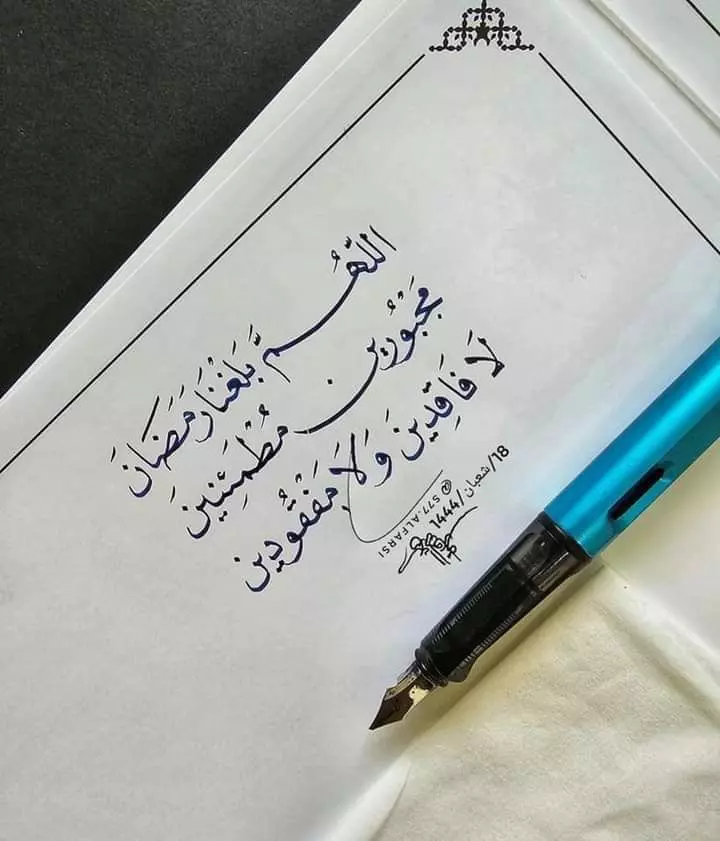 اللّهُمَّ بَلِغْنَا رَمَضَانَ
مَجْبُورِين مُطْمَئِنِينَ
لَا فَاقِدِينَ وَلَا مَفْقُودِين
18/شعبان/1444
@S77.ALFARSI